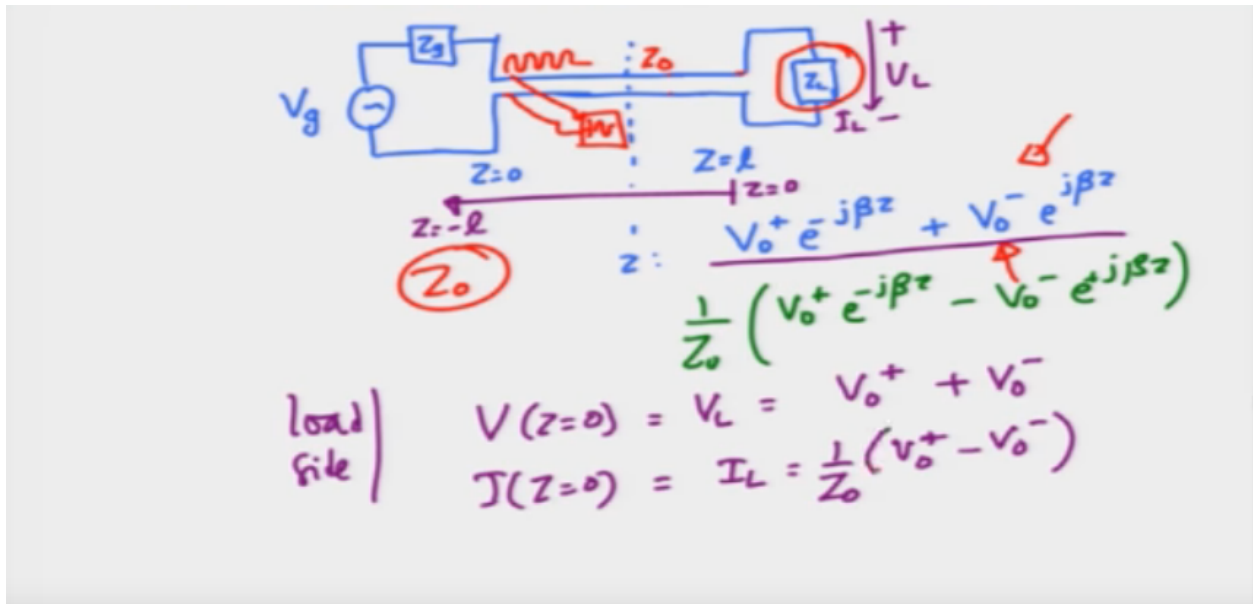 Zg
Z₀
ZL
+
VL
Vg
IL -
Z=0
Z=l
Z=0
Z=-l
Z₀
z:
V₀⁺ e^-jβz + V₀⁻ e^jβz
1/Z₀ (V₀⁺ e^-jβz - V₀⁻ e^+jβz)
load
side
V(Z=0) = VL = V₀⁺ + V₀⁻
I(Z=0) = IL = 1/Z₀ (V₀⁺ - V₀⁻)